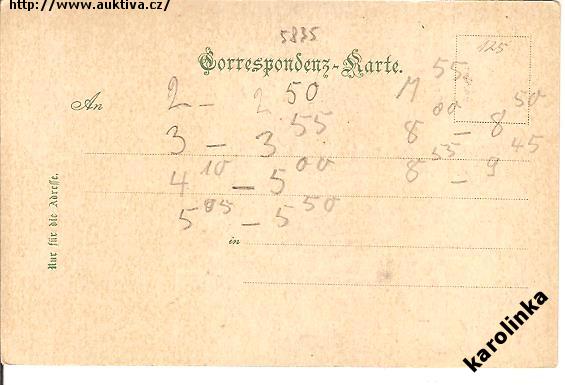 http://www.auktiva.cz/
5835
125
Correspondenz-Karte.
An
2 - 2 50
3 - 3 55
4 10 - 5 00
5 05 - 5 50
M 55
8 00 - 8 50
8 55 - 9 45
in
Nur für die Adresse.
karolinka